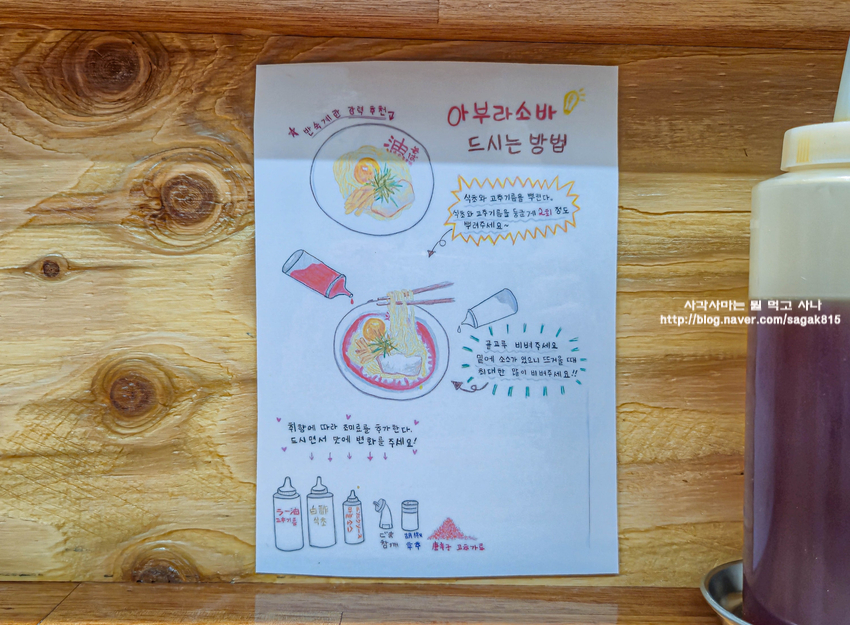 ★ 반숙계란 강력 추천
油
아부라소바
드시는 방법
식초와 고추기름을 뿌린다.
식초와 고추기름을 둥글게 2회 정도
뿌려주세요~
골고루 비벼주세요
밑에 소스가 있으니 뜨거울 때
최대한 많이 비벼주세요!!
취향에 따라 조미료를 추가한다.
드시면서 맛에 변화를 주세요!
ラー油
고추기름
酢
식초
참깨
후추
고춧가루
사각사마는 뭘 먹고 사나
http://blog.naver.com/sagak815